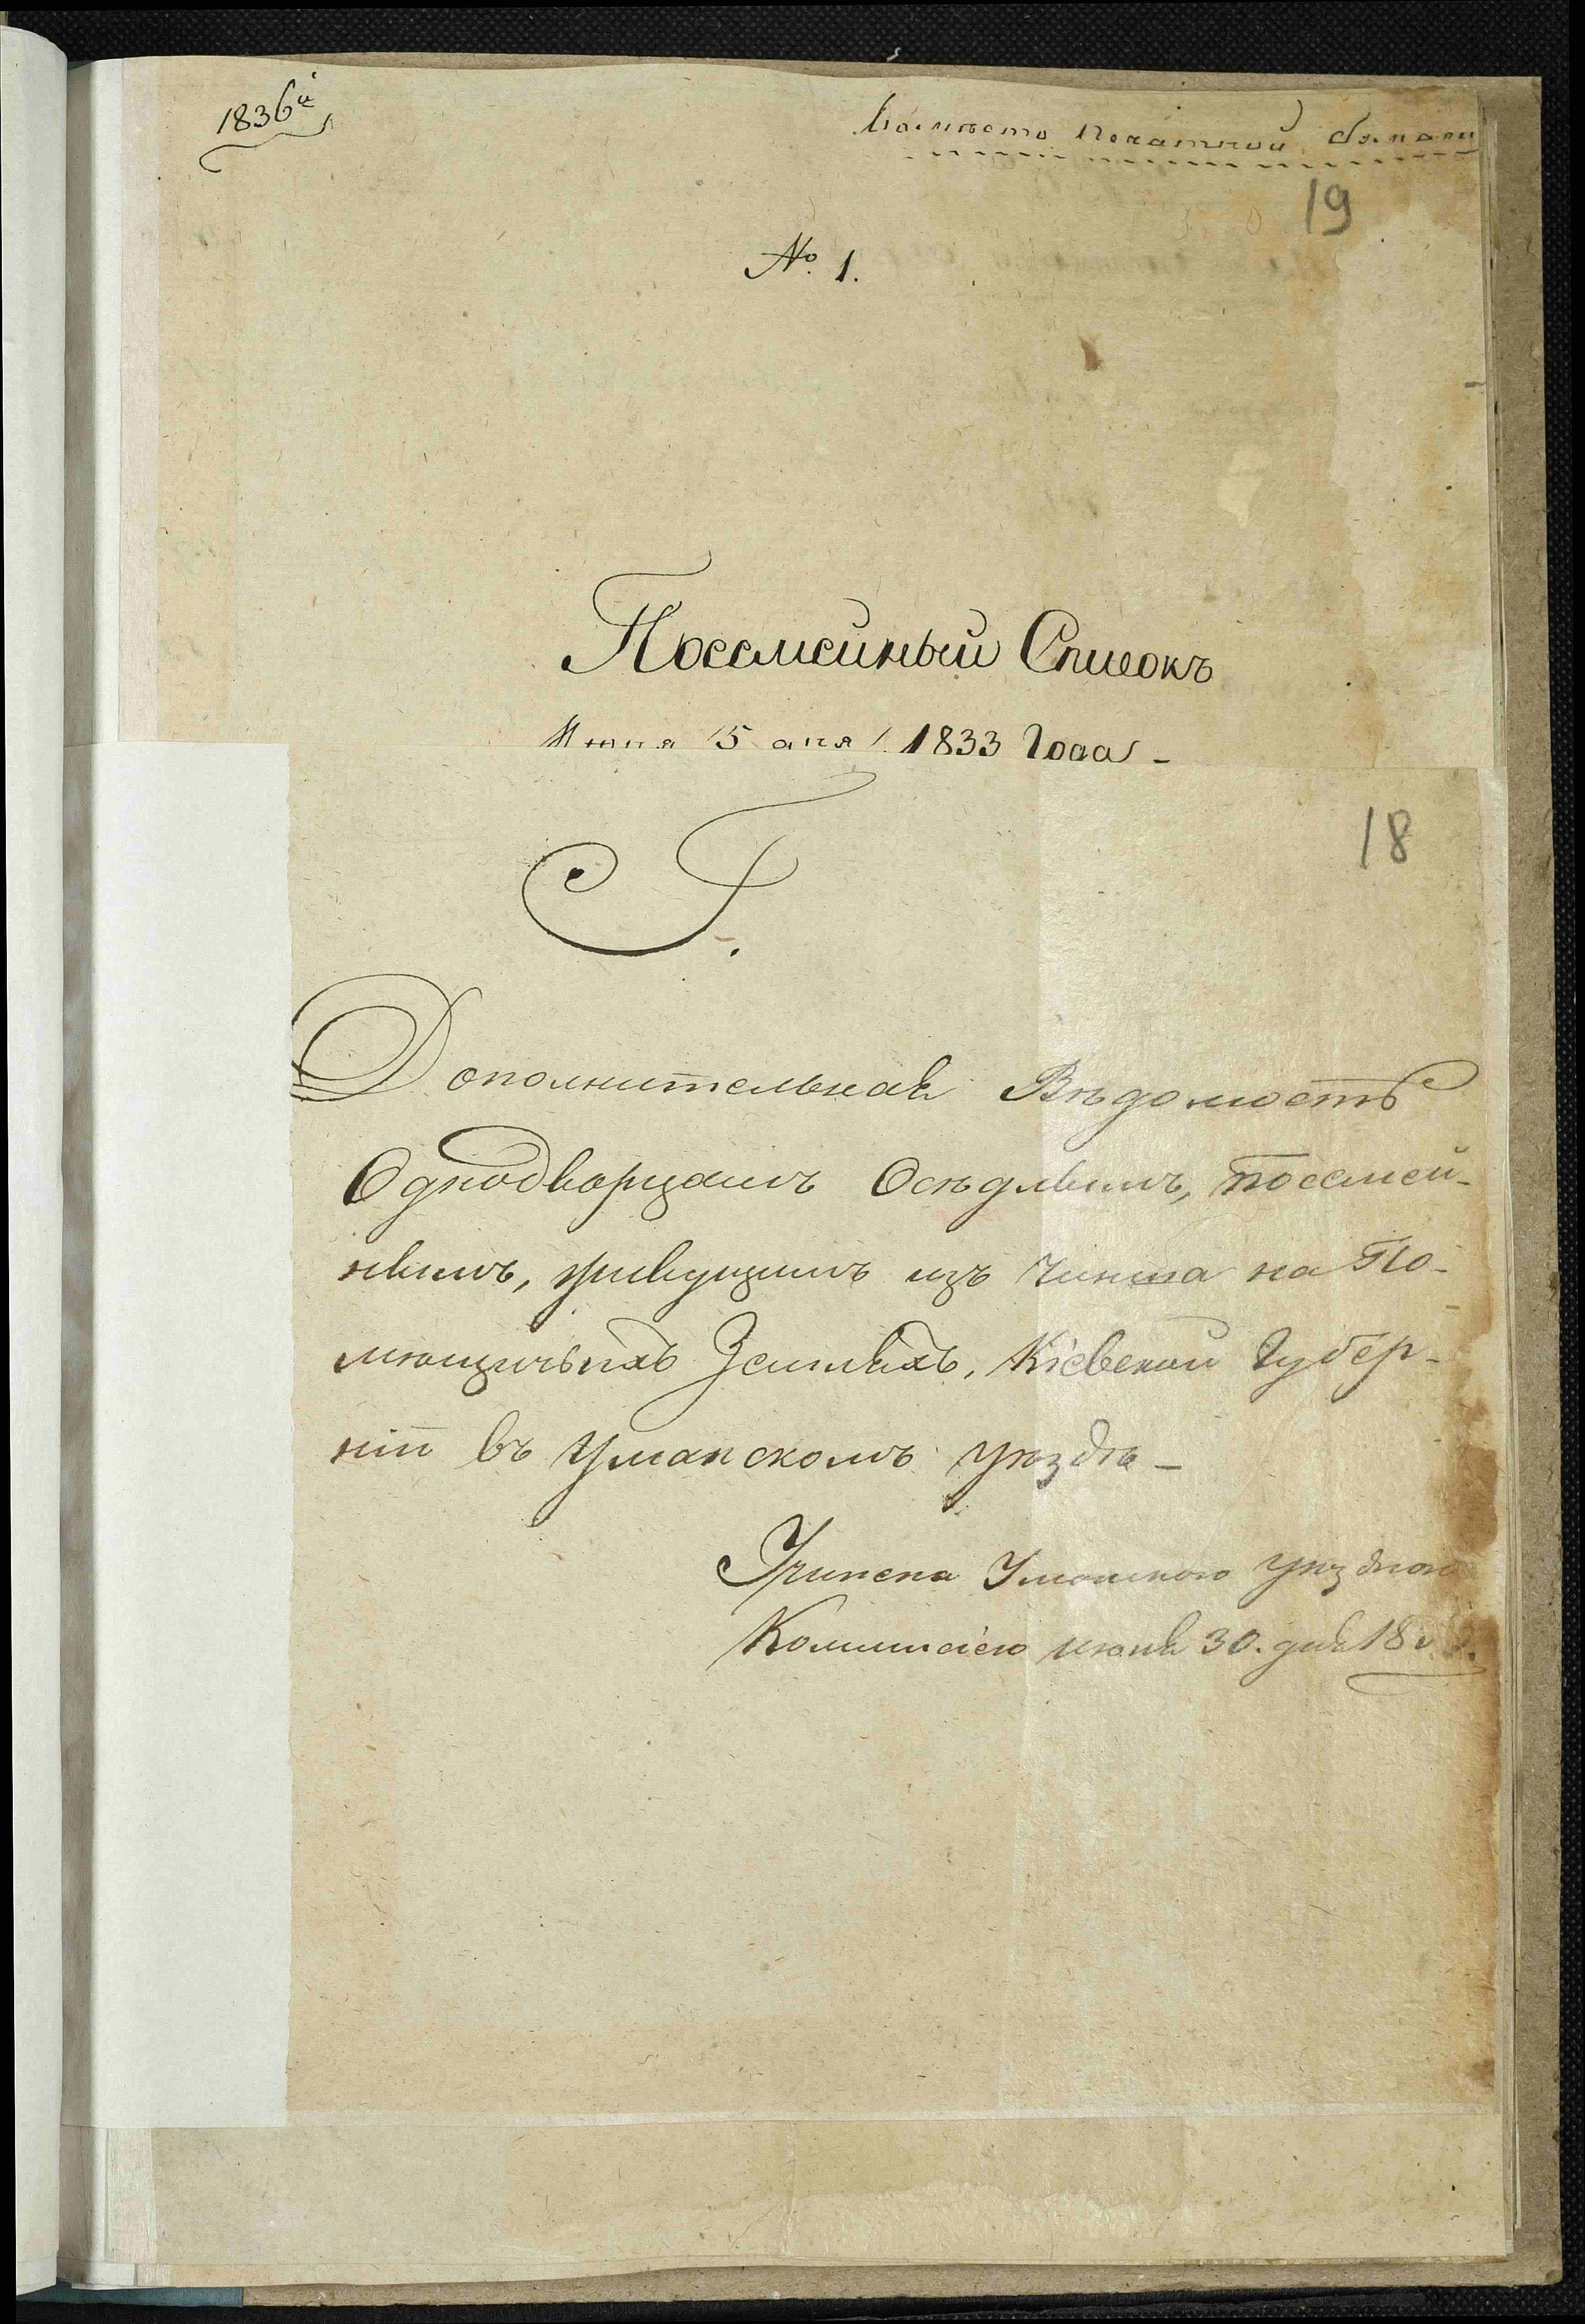 1836й
Вмѣсто Печатной бумаги
19
№ 1.
Посемейный Списокъ
Июня 15 дня 1833 Года
18
Г.
Дополнительная Вѣдомость
Однодворцамъ Осѣдлымъ, посемей-
нымъ, живущимъ изъ чинша на По-
мющичьихъ Земляхъ, Кіевской Губер-
ніи въ Уманскомъ уѣздѣ
Учинена Уманскою уѣздною
Коммисіею июня 30. дня 18